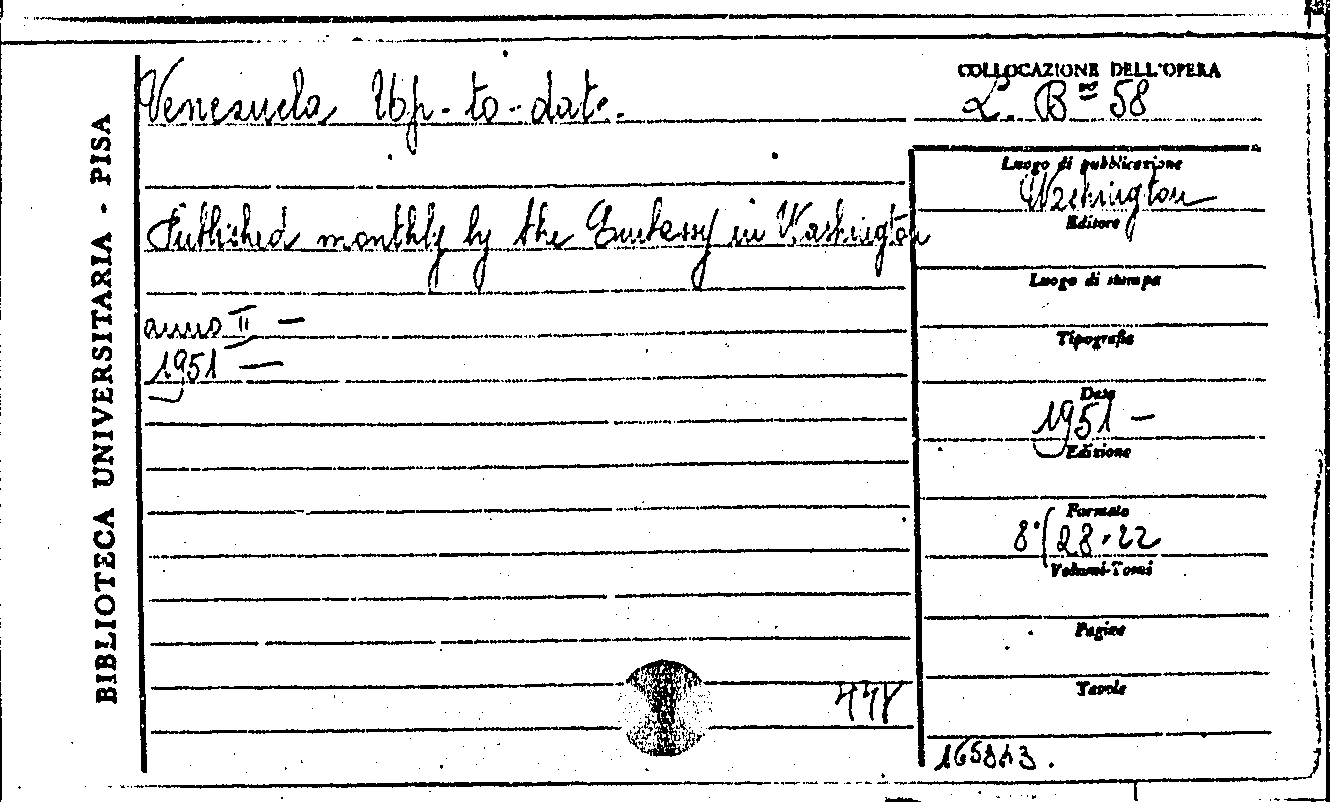 BIBLIOTECA UNIVERSITARIA - PISA
Venezuela Up-to-date.
Published monthly by the Embassy in Washington
anno II —
1951 —
COLLOCAZIONE DELL'OPERA
L. B 58
Luogo di pubblicazione
Washington
Editore
Luogo di stampa
Tipografia
Data
1951 —
Edizione
Formato
8° (28×22
Volumi-Tomi
Pagine
Tavole